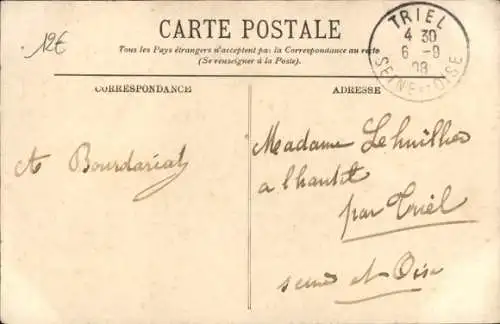 12€
CARTE POSTALE
Tous les Pays étrangers n'acceptent pas la Correspondance au recto
(Se renseigner à la Poste).
TRIEL
4 30
6 - 9
08
SEINE ET OISE
CORRESPONDANCE
ADRESSE
A Bourdariat
Madame Lehuillier
a l'hautil
par Triel
seine et Oise